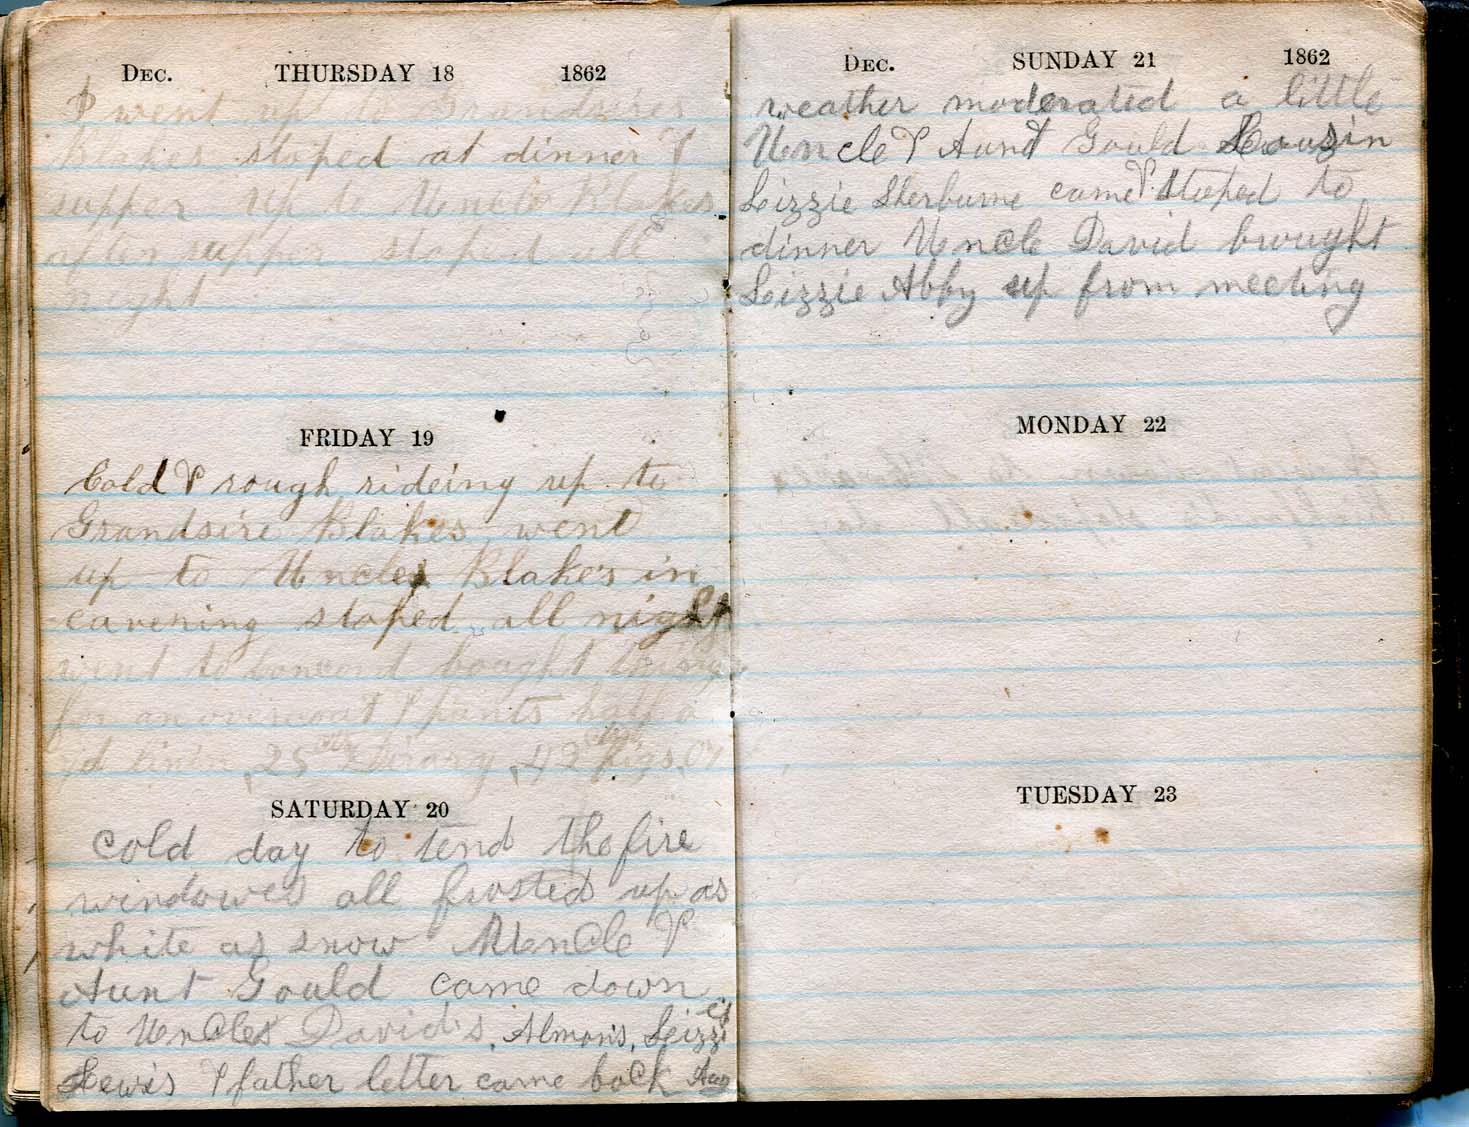 DEC. THURSDAY 18 1862
I went up to Grandsires
Blakes stoped at dinner &
supper up to Uncle Blakes
after supper stoped all
night
FRIDAY 19
Cold & rough rideing up to
Grandsire Blakes went
up to Uncles Blake's in
eavening stoped all night
went to concord bought
for an overcoat & pants half a
yd linin 25 42 figs 07
SATURDAY 20
Cold day to tend the fire
windowes all frosted up as
white as snow Uncle &
Aunt Gould came down
to Uncles David's, Almon's, Leizzies
Lewis & father letter came back Aug
DEC. SUNDAY 21 1862
weather moderated a little
Uncle & Aunt Gould Cousin
Leizzie Sherburne came & stoped to
dinner Uncle David brought
Leizzie Abby up from meeting
MONDAY 22
TUESDAY 23